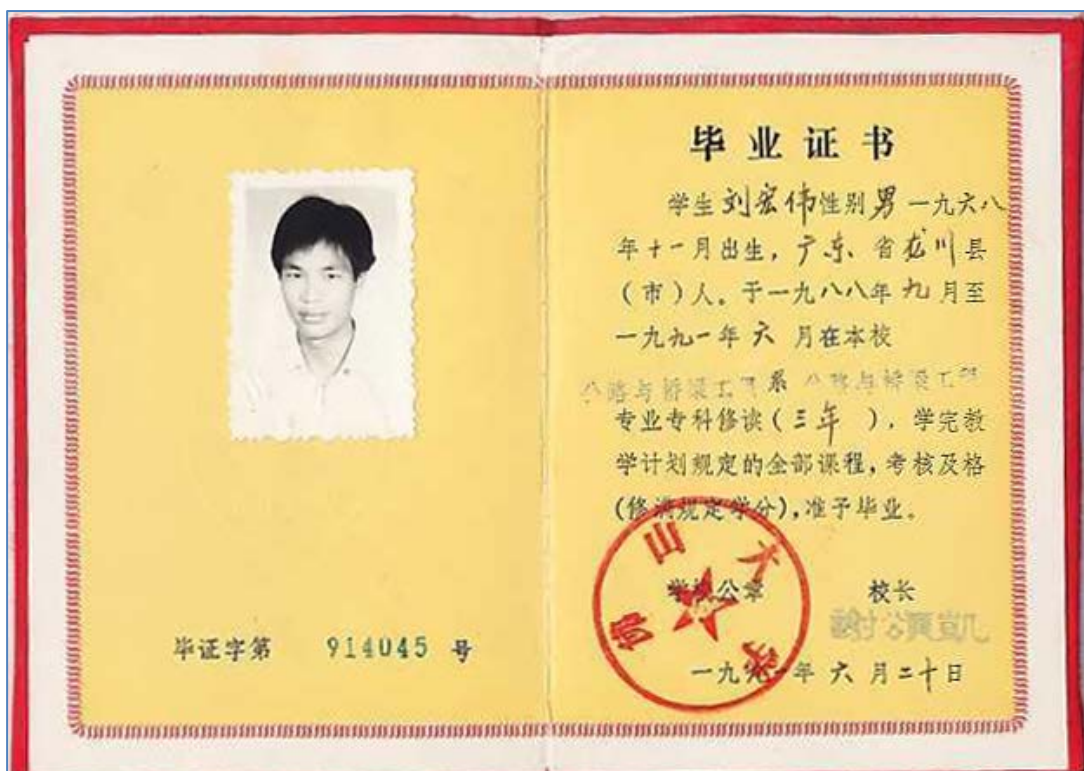 毕证字第 914045 号
毕业证书
学生刘宏伟性别男一九六八
年十一月出生，广东省龙川县
（市）人。于一九八八年九月至
一九九一年六月在本校
公路与桥梁工程系公路与桥梁工程
专业专科修读（三年），学完教
学计划规定的全部课程，考核及格
（修满规定学分），准予毕业。
佛山大学
学校公章 校长
一九九一年六月二十日